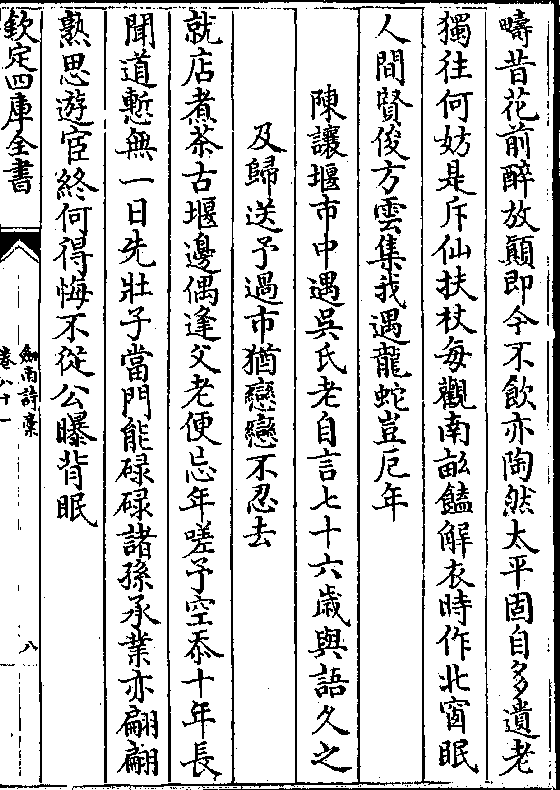 疇昔花前醉放顛即今不飲亦陶然太平固自多遺老
獨往何妨是斥仙扶杖每觀南畝饁解衣時作北窗眠
人間賢俊方雲集我遇龍蛇豈厄年
陳讓堰市中遇吳氏老自言七十六歲與語久之
及歸送予過市猶戀戀不忍去
就店煮茶古堰邊偶逢父老便忘年嗟予空忝十年長
聞道慙無一日先壯子當門能碌碌諸孫承業亦翩翩
熟思遊宦終何得悔不從公曝背眠
欽定四庫全書
劒南詩稾
卷八十一
八